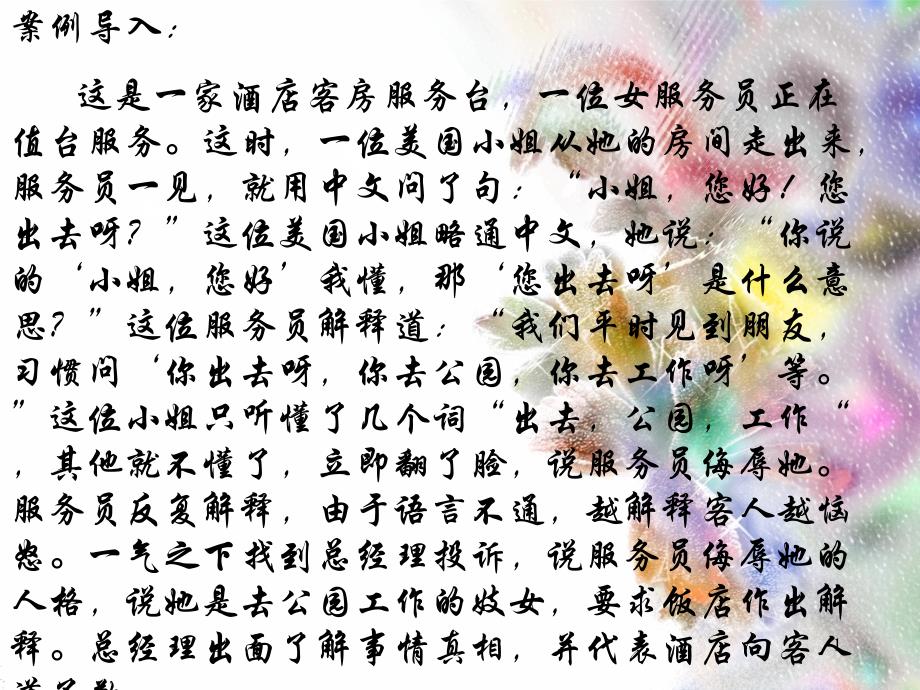 案例导入：
这是一家酒店客房服务台，一位女服务员正在
值台服务。这时，一位美国小姐从她的房间走出来，
服务员一见，就用中文问了句：“小姐，您好！您
出去呀？”这位美国小姐略通中文，她说：“你说
的‘小姐，您好’我懂，那‘您出去呀’是什么意
思？”这位服务员解释道：“我们平时见到朋友，
习惯问‘你出去呀，你去公园，你去工作呀’等。
”这位小姐只听懂了几个词“出去，公园，工作“
，其他就不懂了，立即翻了脸，说服务员侮辱她。
服务员反复解释，由于语言不通，越解释客人越恼
怒。一气之下找到总经理投诉，说服务员侮辱她的
人格，说她是去公园工作的妓女，要求饭店作出解
释。总经理出面了解事情真相，并代表酒店向客人